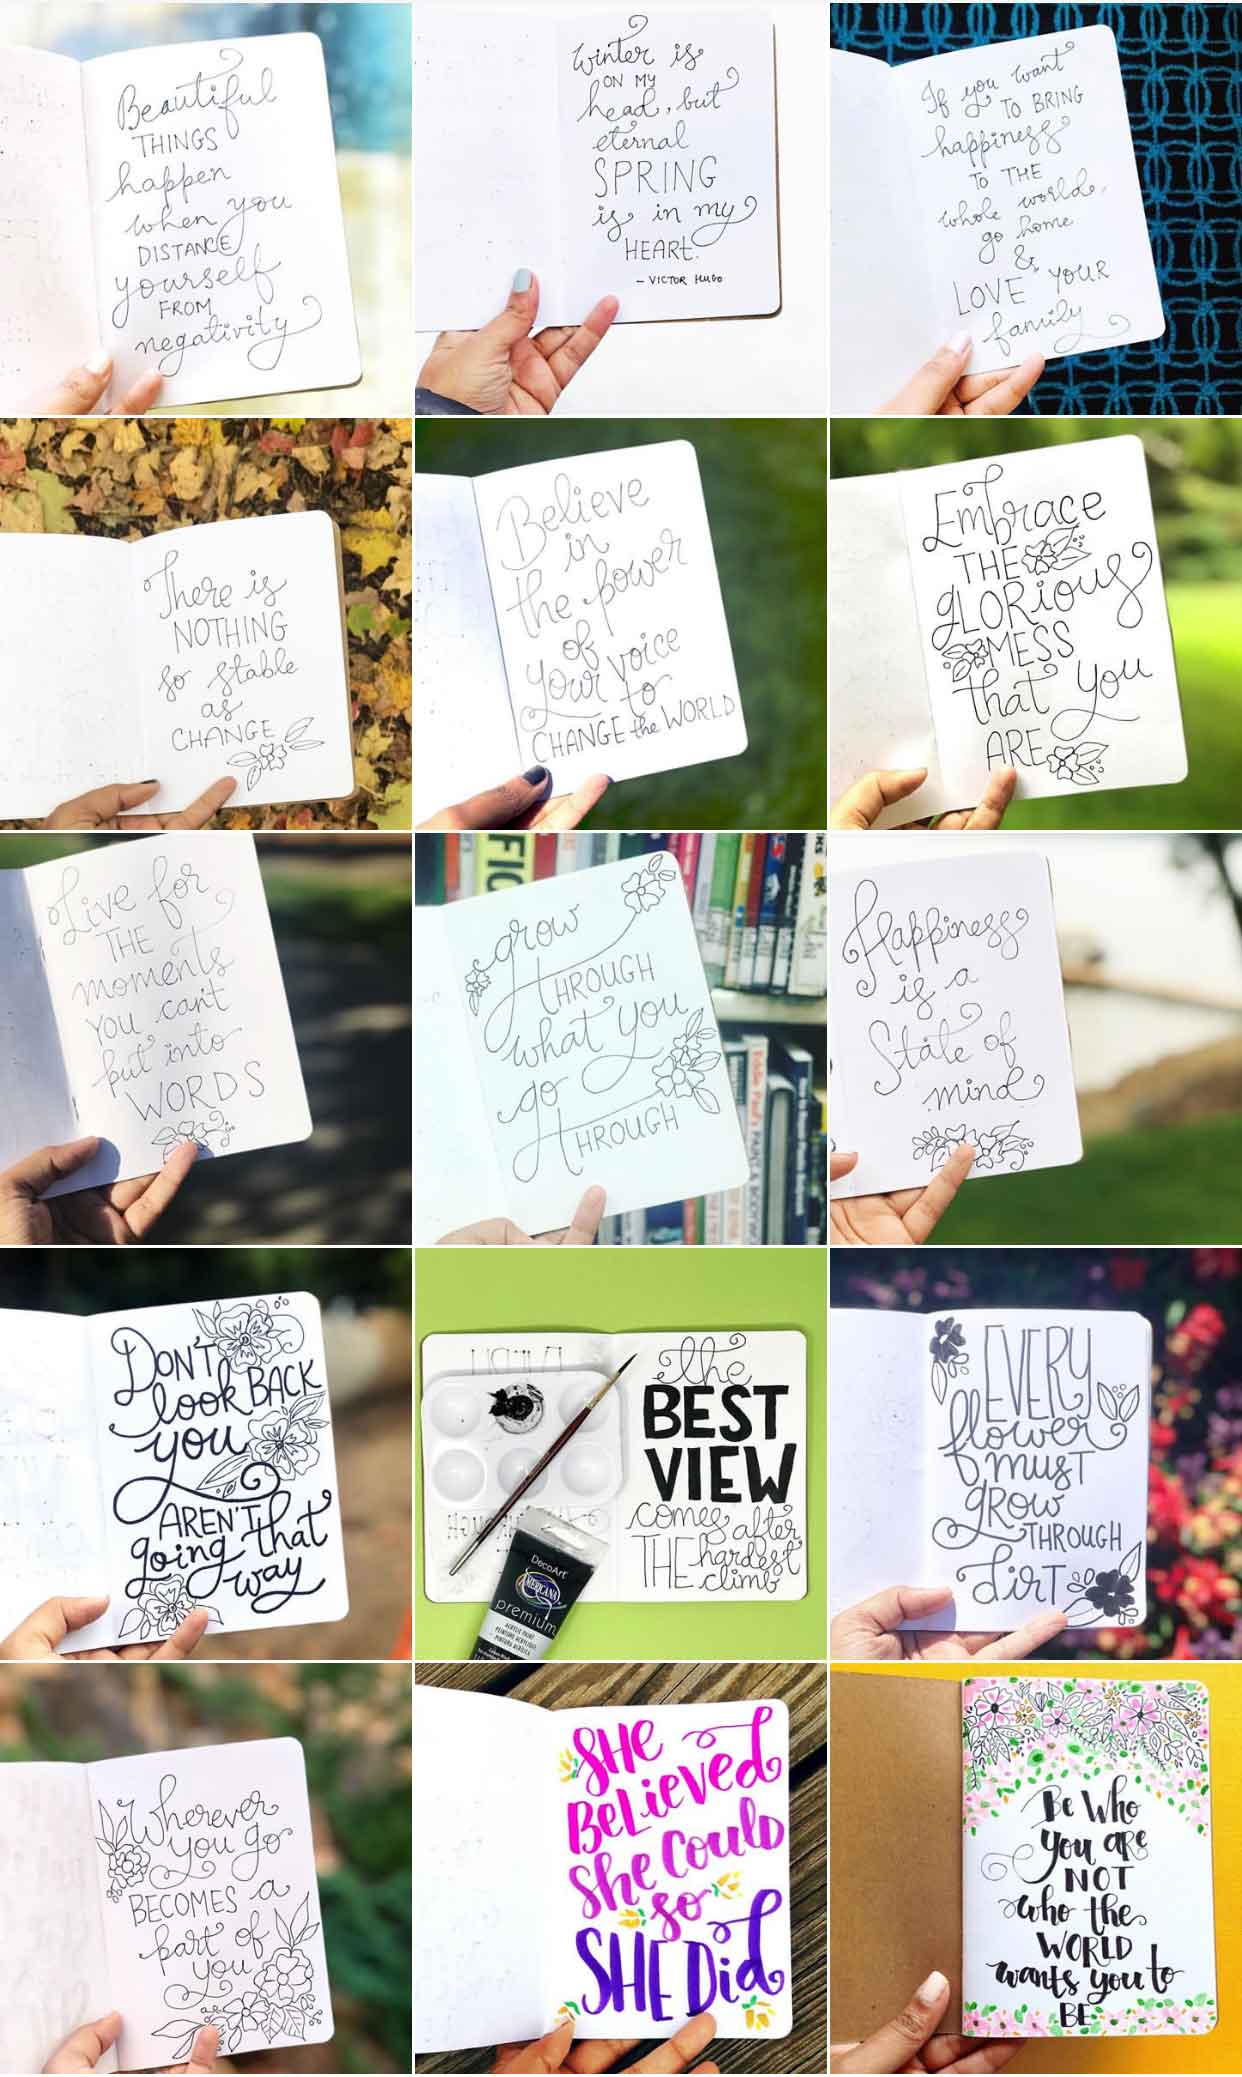 Beautiful
THINGS
happen
when you
DISTANCE
yourself
FROM
negativity
Winter is
ON MY
head, but
eternal
SPRING
is in my
HEART.
- VICTOR HUGO
If you want
TO BRING
happiness
TO THE
whole world,
go home
&
LOVE YOUR
family
There is
NOTHING
so stable
as
CHANGE
Believe
in
the power
of
your voice
to
CHANGE the WORLD
Embrace
THE
gLORious
MESS
that you
ARE
Live for
THE
moments
you can't
put into
WORDS
FIC
grow
THROUGH
what you
go
THROUGH
Happiness
is a
State of
mind
DON'T
look BACK
you
AREN'T
going that
way
the
BEST
VIEW
comes after
THE hardest
climb
DecoArt
AMERICANA
premium
ACRYLIC PAINT
EVERY
flower
must
grow
THROUGH
dirt
Wherever
you go
BECOMES a
part of
you
SHE
BeLieved
She Could
so
SHE Did
Be Who
You are
NOT
who the
WORLD
wants you to
BE